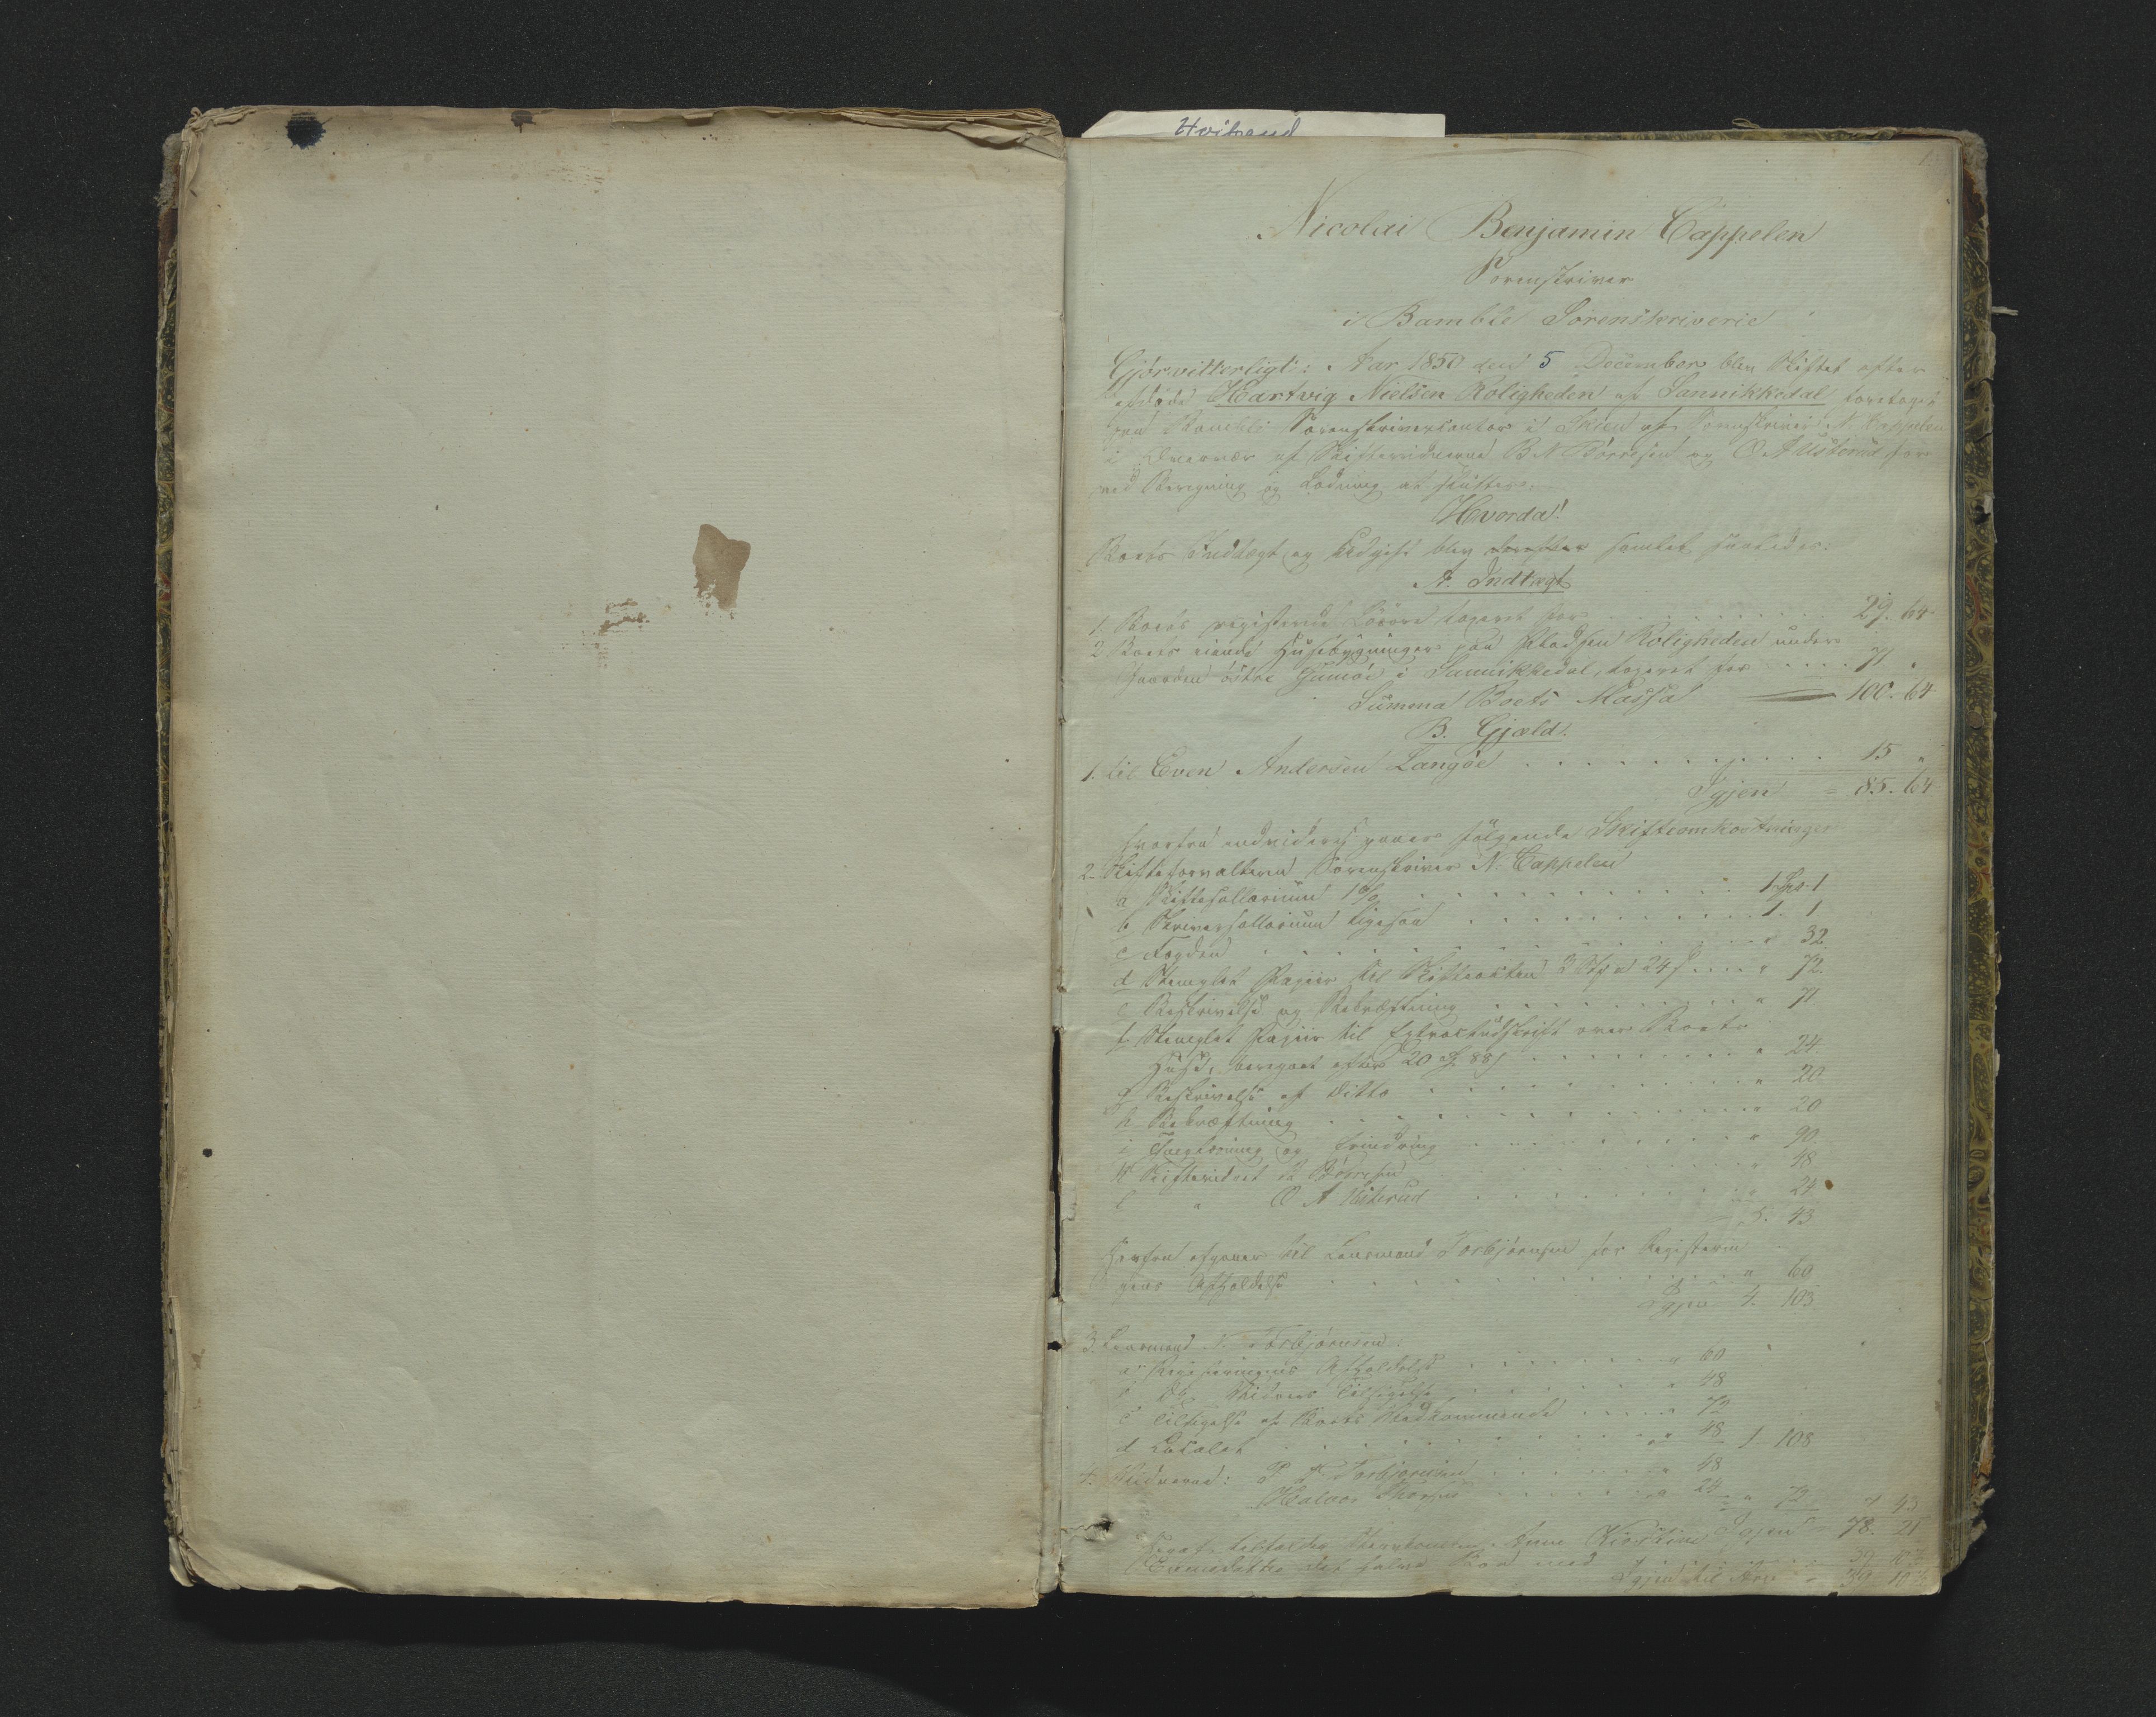 Hvitsand
1.
Nicolai Benjamin Cappelen
Sorenskriver
i Bamble Sorenskriverie
Gjör vitterligt: Aar 1850 den 5 December blev Skiftet efter
afdöde Hartvig Nielsen Roligheden af Sannikkedal foretaget
paa Bamble Sorenskrivercontor i Skien af Sorenskriver N. Cappelen
i Overvær af Skiftevidnerne B N Börresen og O A Ulsterud for
ved Beregning og Lodning at sluttes.
Hvorda!
Boets Indtægt og Udgift blev samlet saaledes:
A. Indtægt
1. Boets registrerede Lösöre taxeret for . . . 29. 64
2 Boets eiende Huusbygninger paa Pladsen Roligheden under
Gaarden östre i Sannikkedal, taxeret for . . . . 71 "
Summa Boets Massa 100. 64
B. Gjæld.
1. til Even Andersen Langöe . . . 15 "
Igjen = 85. 64
hvorfra endvidere gaaer fölgende Skifteomkostninger
2. Skifteforvalteren Sorenskriver N. Cappelen
a Skiftesallarium 1 % . . . 1 Spd 1
b Skriversallarium ligesaa . . . 1. 1
c Fogden . . . " 32
d Stemplet Papiir til Skifteakten 3 Ark a 24 s . . . " 72.
e Beskrivelse og Bekræftning . . . " 71
f Stemplet Papiir til Extractudskrift over Boets
Huse, beregnet efter 20 88 s . . . " 24.
g Beskrivelse af ditto . . . " 20.
h Bekræftning . . . " 20
i Tinglæsning og . . . " 90.
k Skiftevidnet B Börresen . . . " 48
l " O A Ulsterud . . . " 24
5. 43
Herfra afgaaer til Lensmand Torbjörnsen for Registerin
gens Afholdelse . . . " 60
Igjen 4. 103
3. Lensmand N. Torbjörnsen.
a Registeringens Afholdelse . . . " 60
b do. Vidners Tilsigelse . . . " 48
c Tilsigelse af Boets Vedkommende . . . " 72
d Localet . . . " 48 1 108
4. Vidnerne: P N Torbjörnsen . . . " 48
Halvor . . . " 24 " 72 7 43
Igjen = 78. 21
Heraf tilfalder Sterveboenken Anne Kirstine
det halve Boe med . . . 39 10½
Igjen til Arv . . . 39 10½